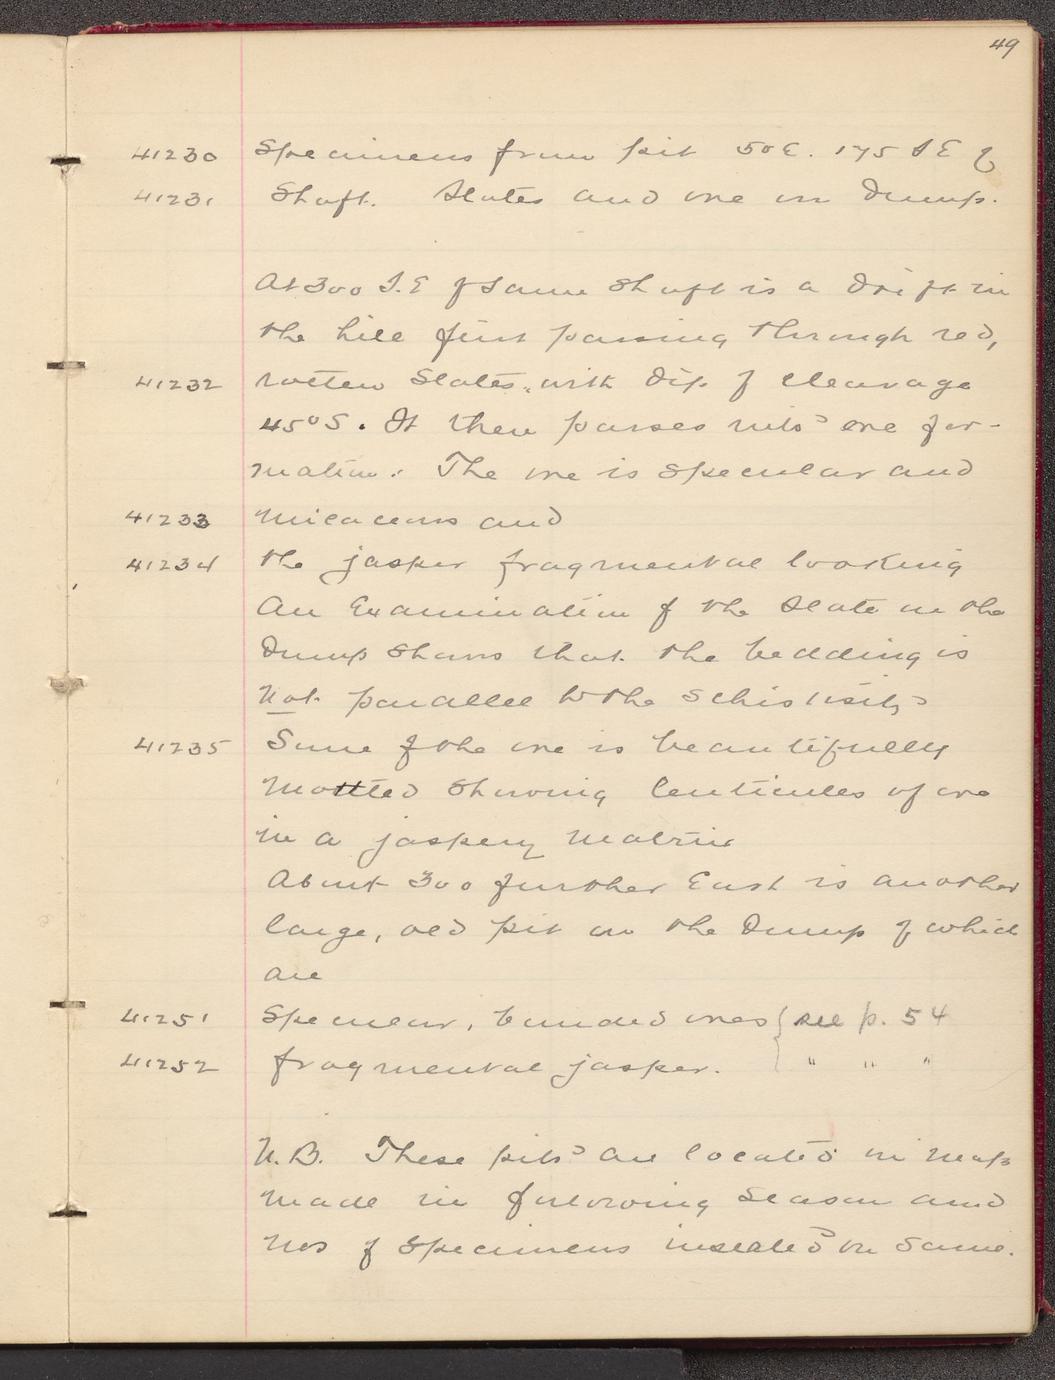 49
41230 Specimens from pit 50 E. 175 S E of
41231 Shaft. Slates and ore on Dump.
At 300 S.E of same Shaft is a Drift in
the hill first passing through red,
41232 rotten Slates, with dip of cleavage
45° S. It then passes into ore for-
mation. The ore is specular and
41233 micaceous and
41234 the jasper fragmental looking
An Examination of the Slate on the
Dump shows that the bedding is
Not parallel to the schistosity
41235 Some of the ore is beautifully
Mottled showing lenticules of ore
in a jaspery matrix
About 300 further East is another
large, old pit on the Dump of which
are
41251 Specular, banded ores { see p. 54
41252 fragmental jasper. { " " "
N.B. These pits are located on map
made in following season and
nos of specimens on same.